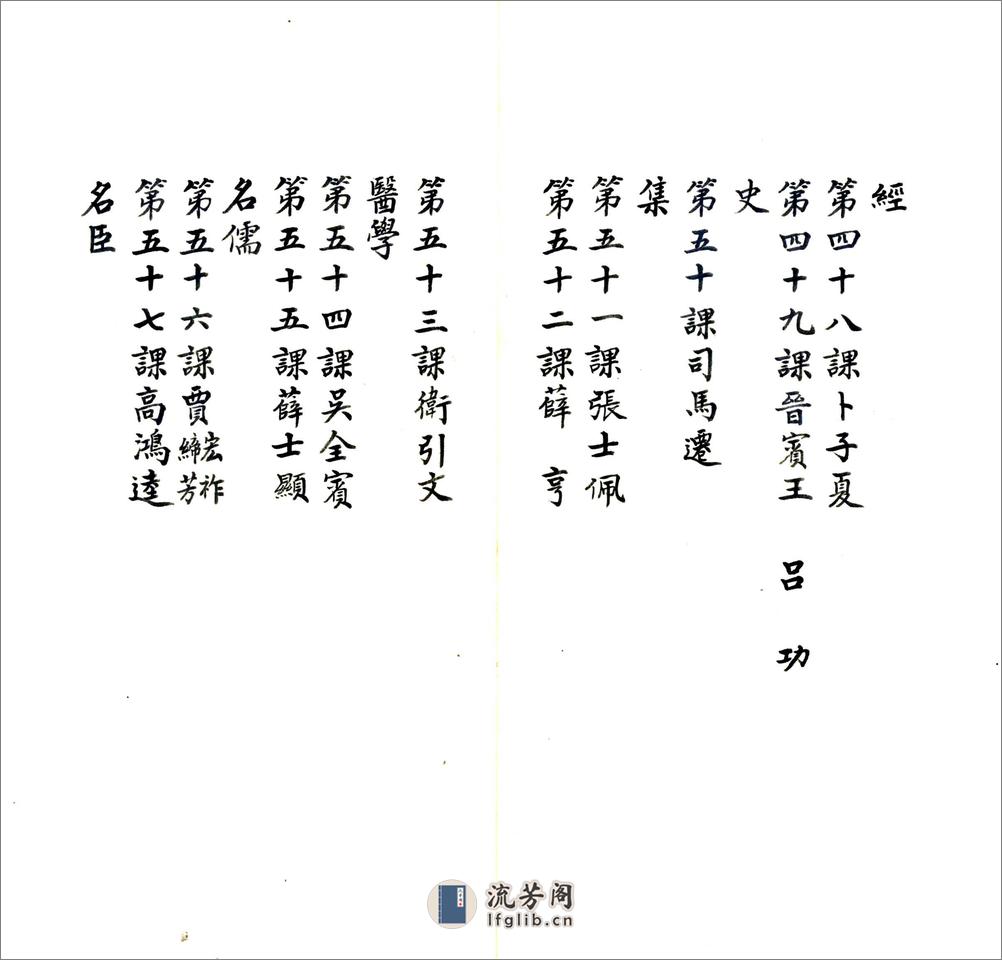 經
第四十八課卜子夏
第四十九課晉賓王 呂功
史
第五十課司馬遷
集
第五十一課張士佩
第五十二課薛 亨
第五十三課衛引文
醫學
第五十四課吳全賓
第五十五課薛士顯
名儒
第五十六課賈宏祚 締芳
第五十七課高鴻逵
名臣
流芳阁
lfglib.cn